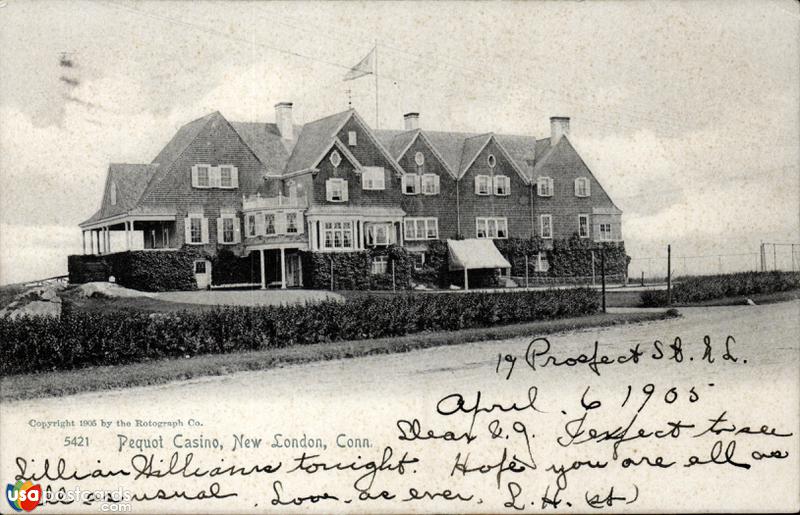 19 Prospect St. N.L.
April. 6 1905
Copyright 1905 by the Rotograph Co.
5421 Pequot Casino, New London, Conn.
Dear I expect to see
Lillian Williams tonight. Hope you are all as
well as usual. Love as ever. L.H. (St)
usapostcards
.com